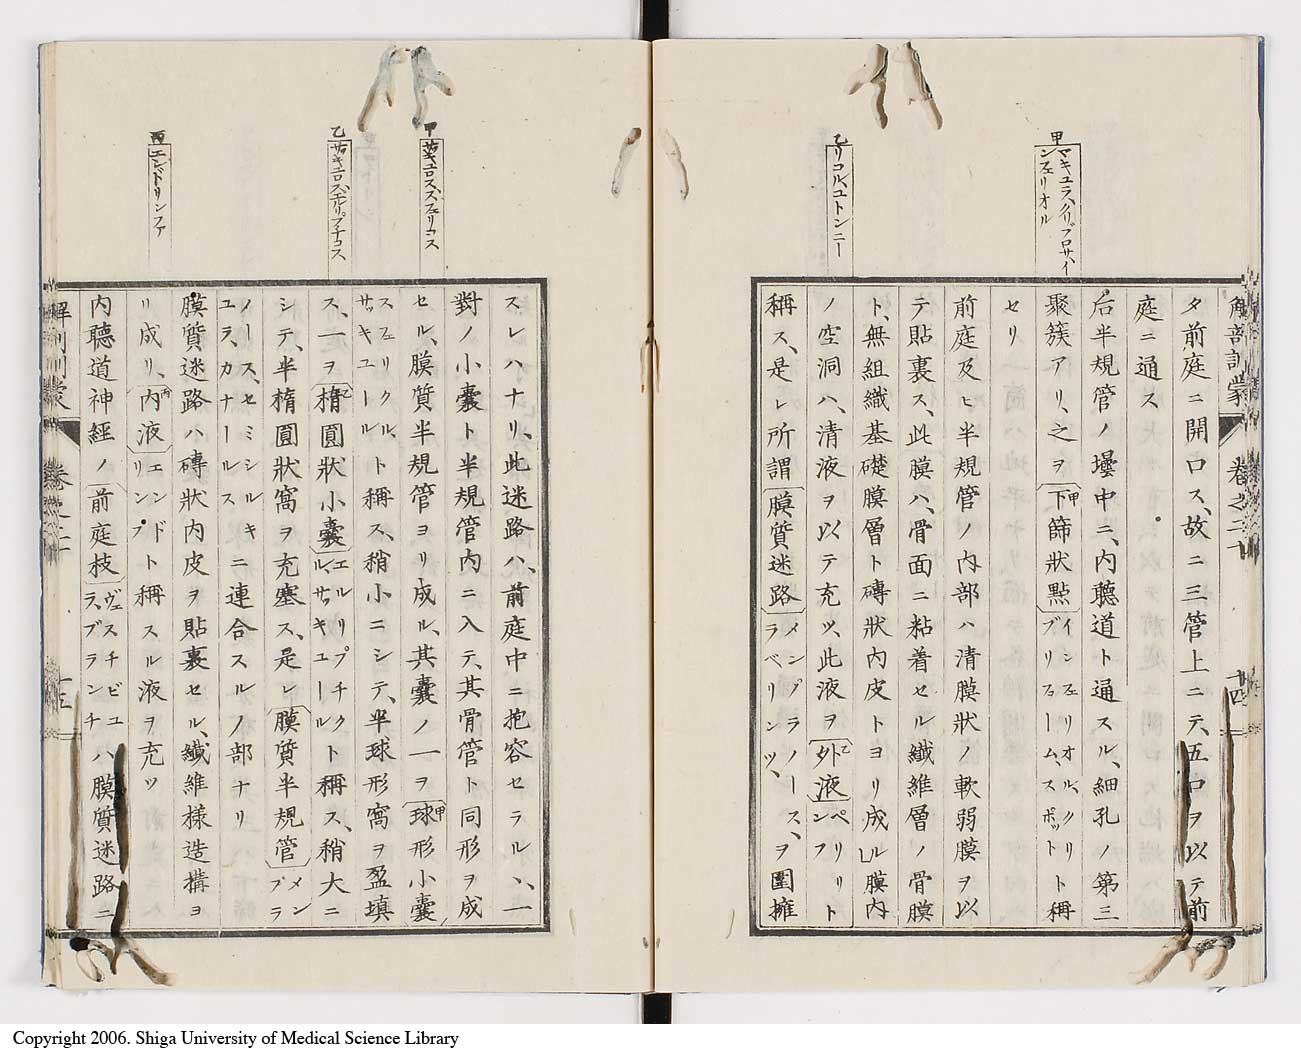 甲
マキュラ、クリブロサ、イ
ンフェリオル
乙
リコル、コトンニー
解剖訓蒙
卷之二十
十四
タ前庭ニ開口ス、故ニ三管上ニテ、五口ヲ以テ前
庭ニ通ス
后半規管ノ壜中ニ、内聽道ト通スル、細孔ノ第三
聚簇アリ、之ヲ下篩狀點インフェリオル、クリブリフォーム、スポットト稱
セリ
前庭及ヒ半規管ノ内部ハ清膜狀ノ軟弱膜ヲ以
テ貼裏ス、此膜ハ、骨面ニ粘着セル纖維層ノ骨膜
ト、無組織基礎膜層ト磚狀内皮トヨリ成ル膜内
ノ空洞ハ、清液ヲ以テ充ツ、此液ヲ外液ペリリンフト
稱ス、是レ所謂膜質迷路メンブラノース、ラベリンツ、ヲ圍擁
甲
サキュロス、スフェリコス
乙
サキュロス、エルリプチコス
丙
エンドリンファ
スレハナリ、此迷路ハ、前庭中ニ抱容セラルヽ、一
對ノ小囊ト半規管内ニ入テ、其骨管ト同形ヲ成
セル、膜質半規管ヨリ成ル、其囊ノ一ヲ球形小囊
スフェリクル、サッキュールト稱ス、稍小ニシテ、半球形窩ヲ盈塡
ス、一ヲ楕圓狀小囊エルリプチクル、サッキュールト稱ス、稍大ニ
シテ、半楕圓狀窩ヲ充塞ス、是レ膜質半規管メンブラ
ノース、セミシルキュラ、カナールスニ連合スルノ部ナリ
膜質迷路ハ磚狀内皮ヲ貼裏セル、纖維樣造搆ヨ
リ成リ、内液エンドリンプト稱スル液ヲ充ツ
内聽道神經ノ前庭枝ヴェスチビュラ、ブランチハ膜質迷路ニ
解剖訓蒙
卷之二十
十五
Copyright 2006. Shiga University of Medical Science Library